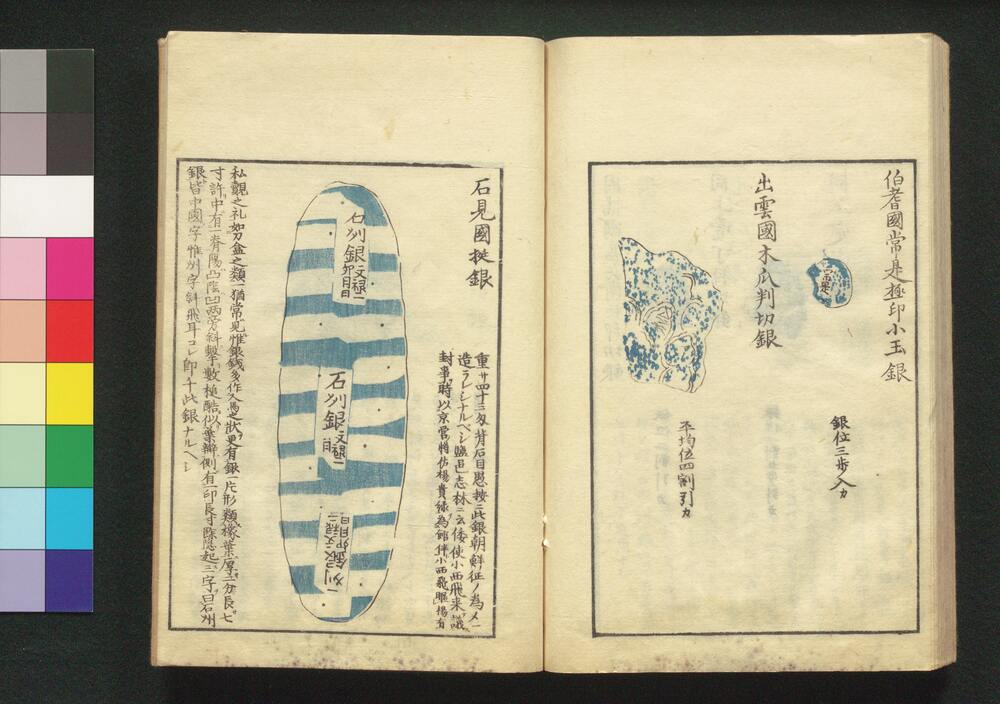 伯耆國常是極印小玉銀
銀位三歩入カ
出雲國木瓜判切銀
平均位四割引カ
石見國挺銀
重サ四十三匁背石目愚按ニ此銀朝鮮征ノ為メニ
造ラレシナルベシ塩邑志林ニ云倭使小西飛来議
封事時以京営将佐楊貴緑為館伴小西飛贐楊有
石州銀
文禄二
卯月日
石州銀
文禄二
州銀
文禄二
卯月日
私覿之礼如刀金之類猶常見惟銀銭多作久馬之状更有銀一片形類橡葉厚二分長七
寸許中有一脊陽凸陰凹両旁斜繋数槌酷似葉辦側有一印長寸餘隠起三字曰石州
銀皆中國字惟州字斜飛耳コレ即チ此銀ナルヘシ